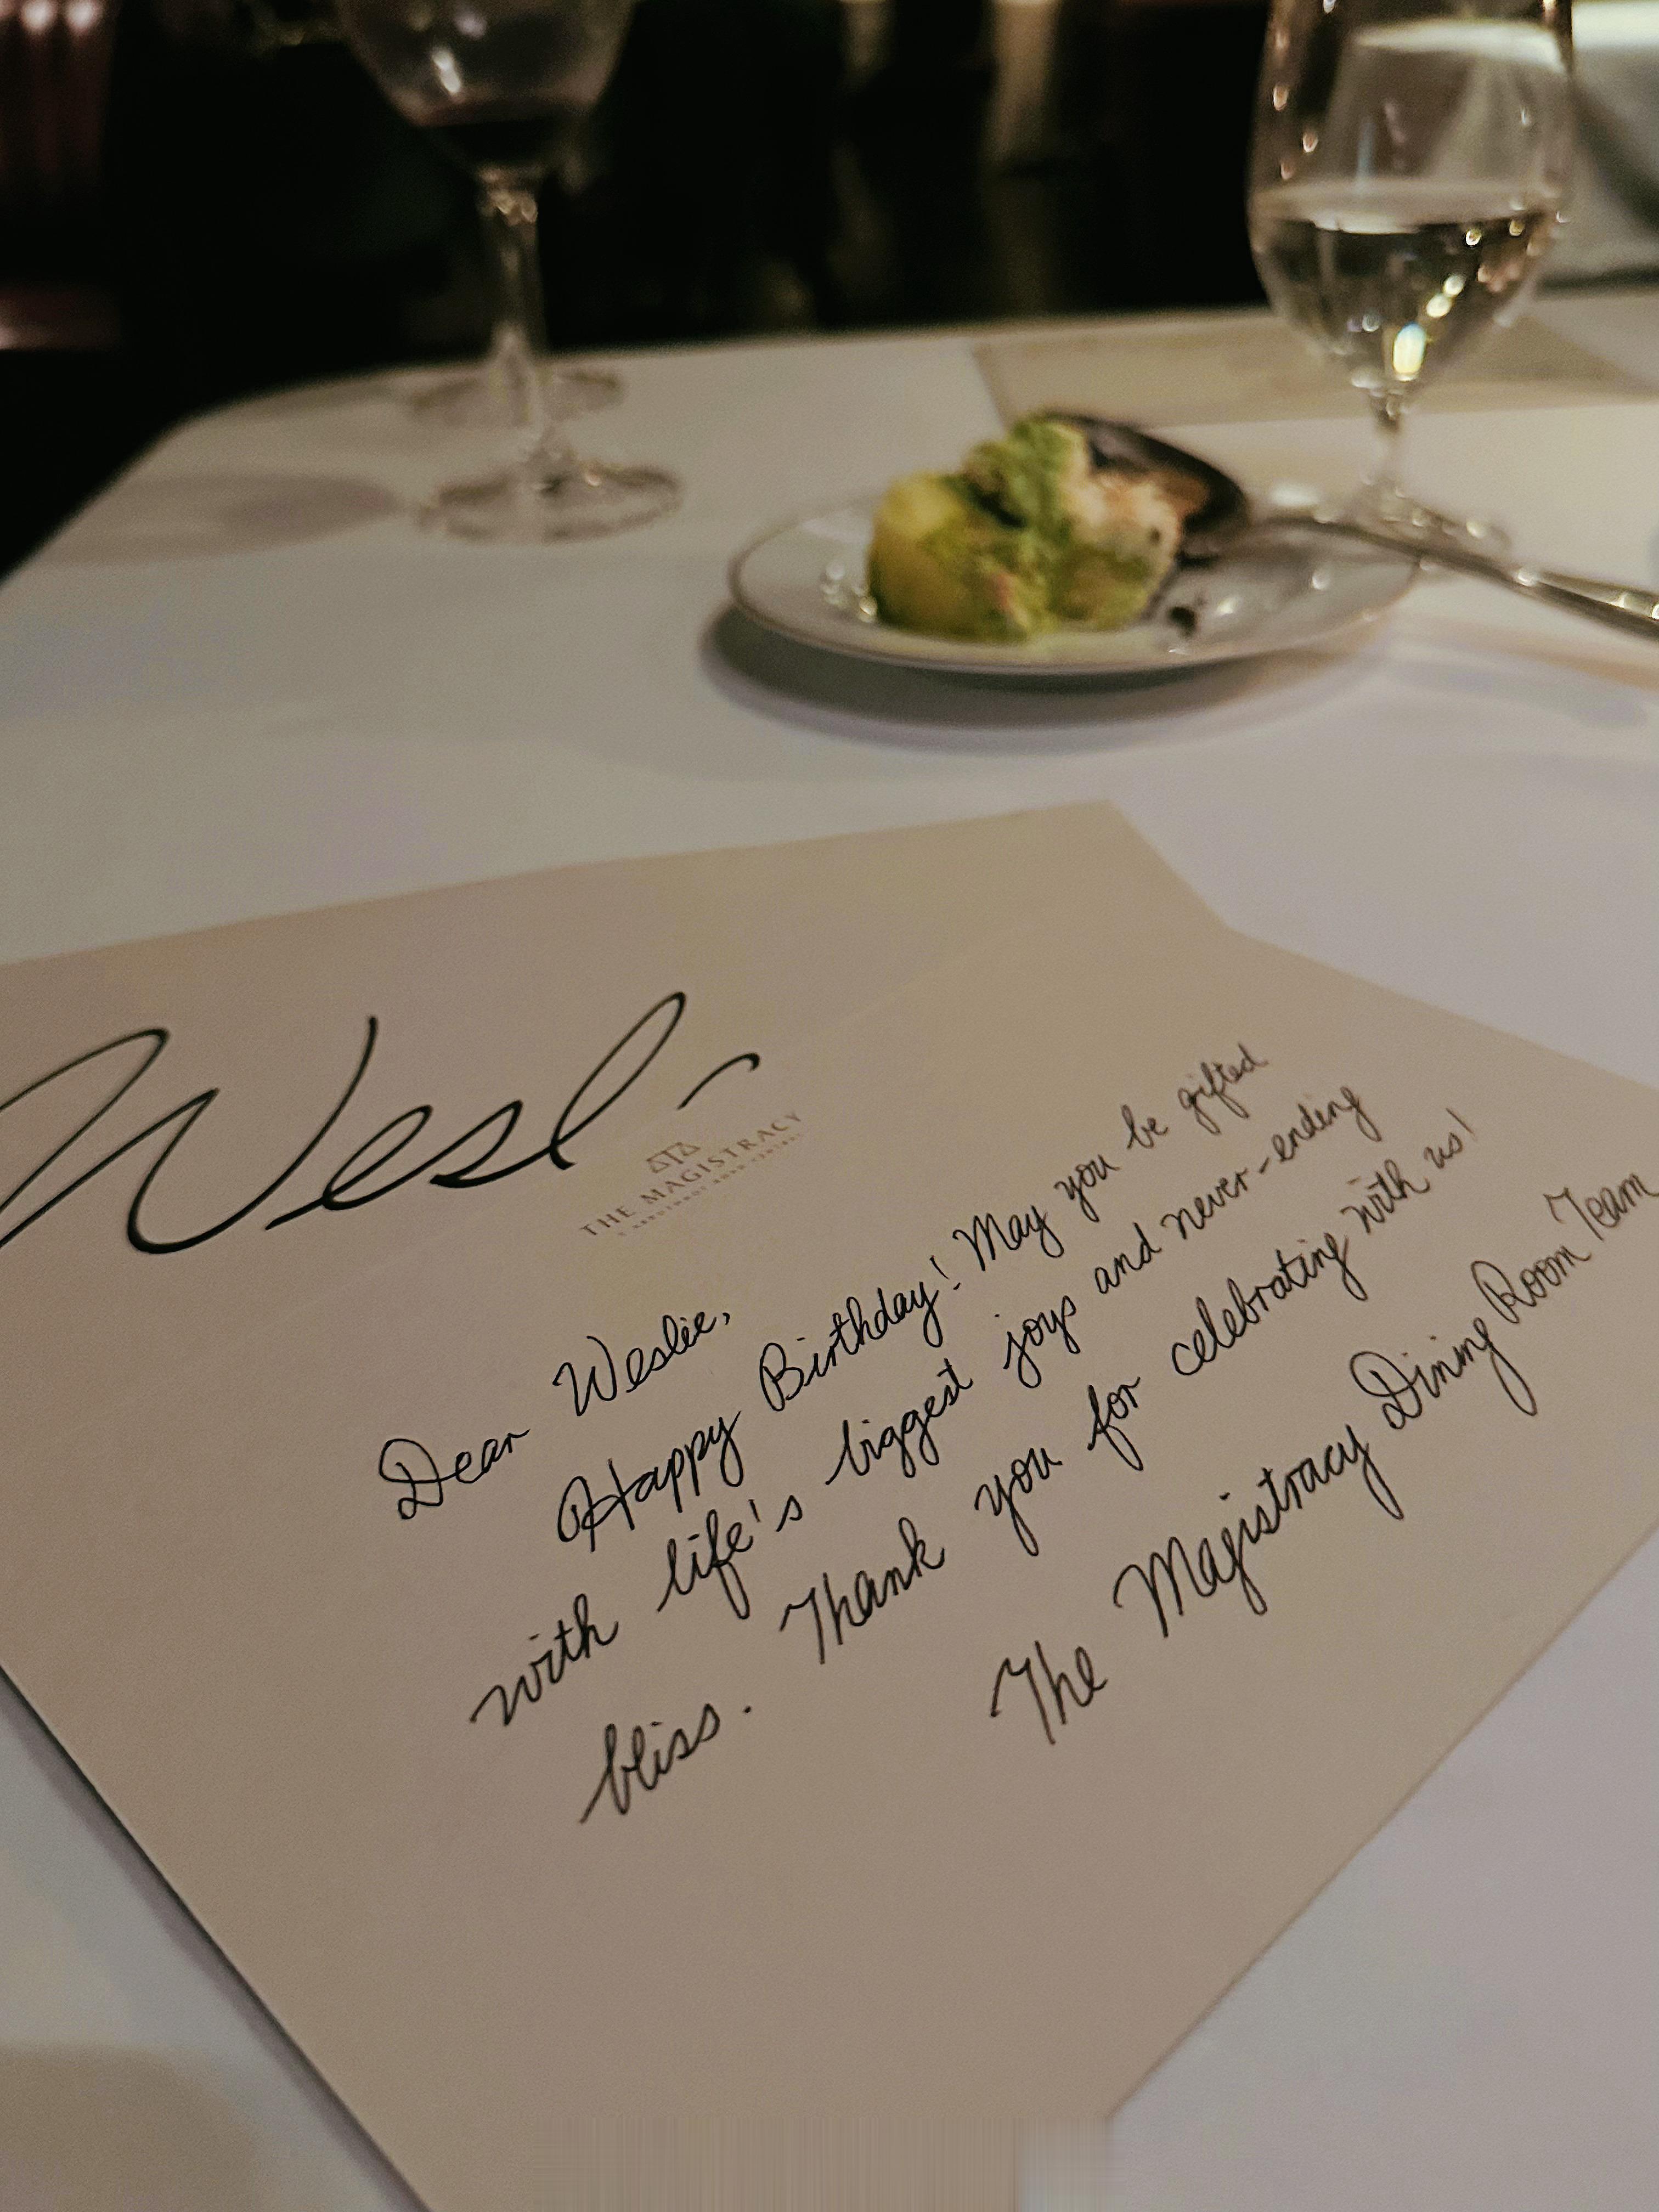 Wesl-
THE MAGISTRACY
Dear Weslie,
Happy Birthday! May you be gifted
with life's biggest joys and never-ending
bliss. Thank you for celebrating with us!
The Magistracy Dining Room Team